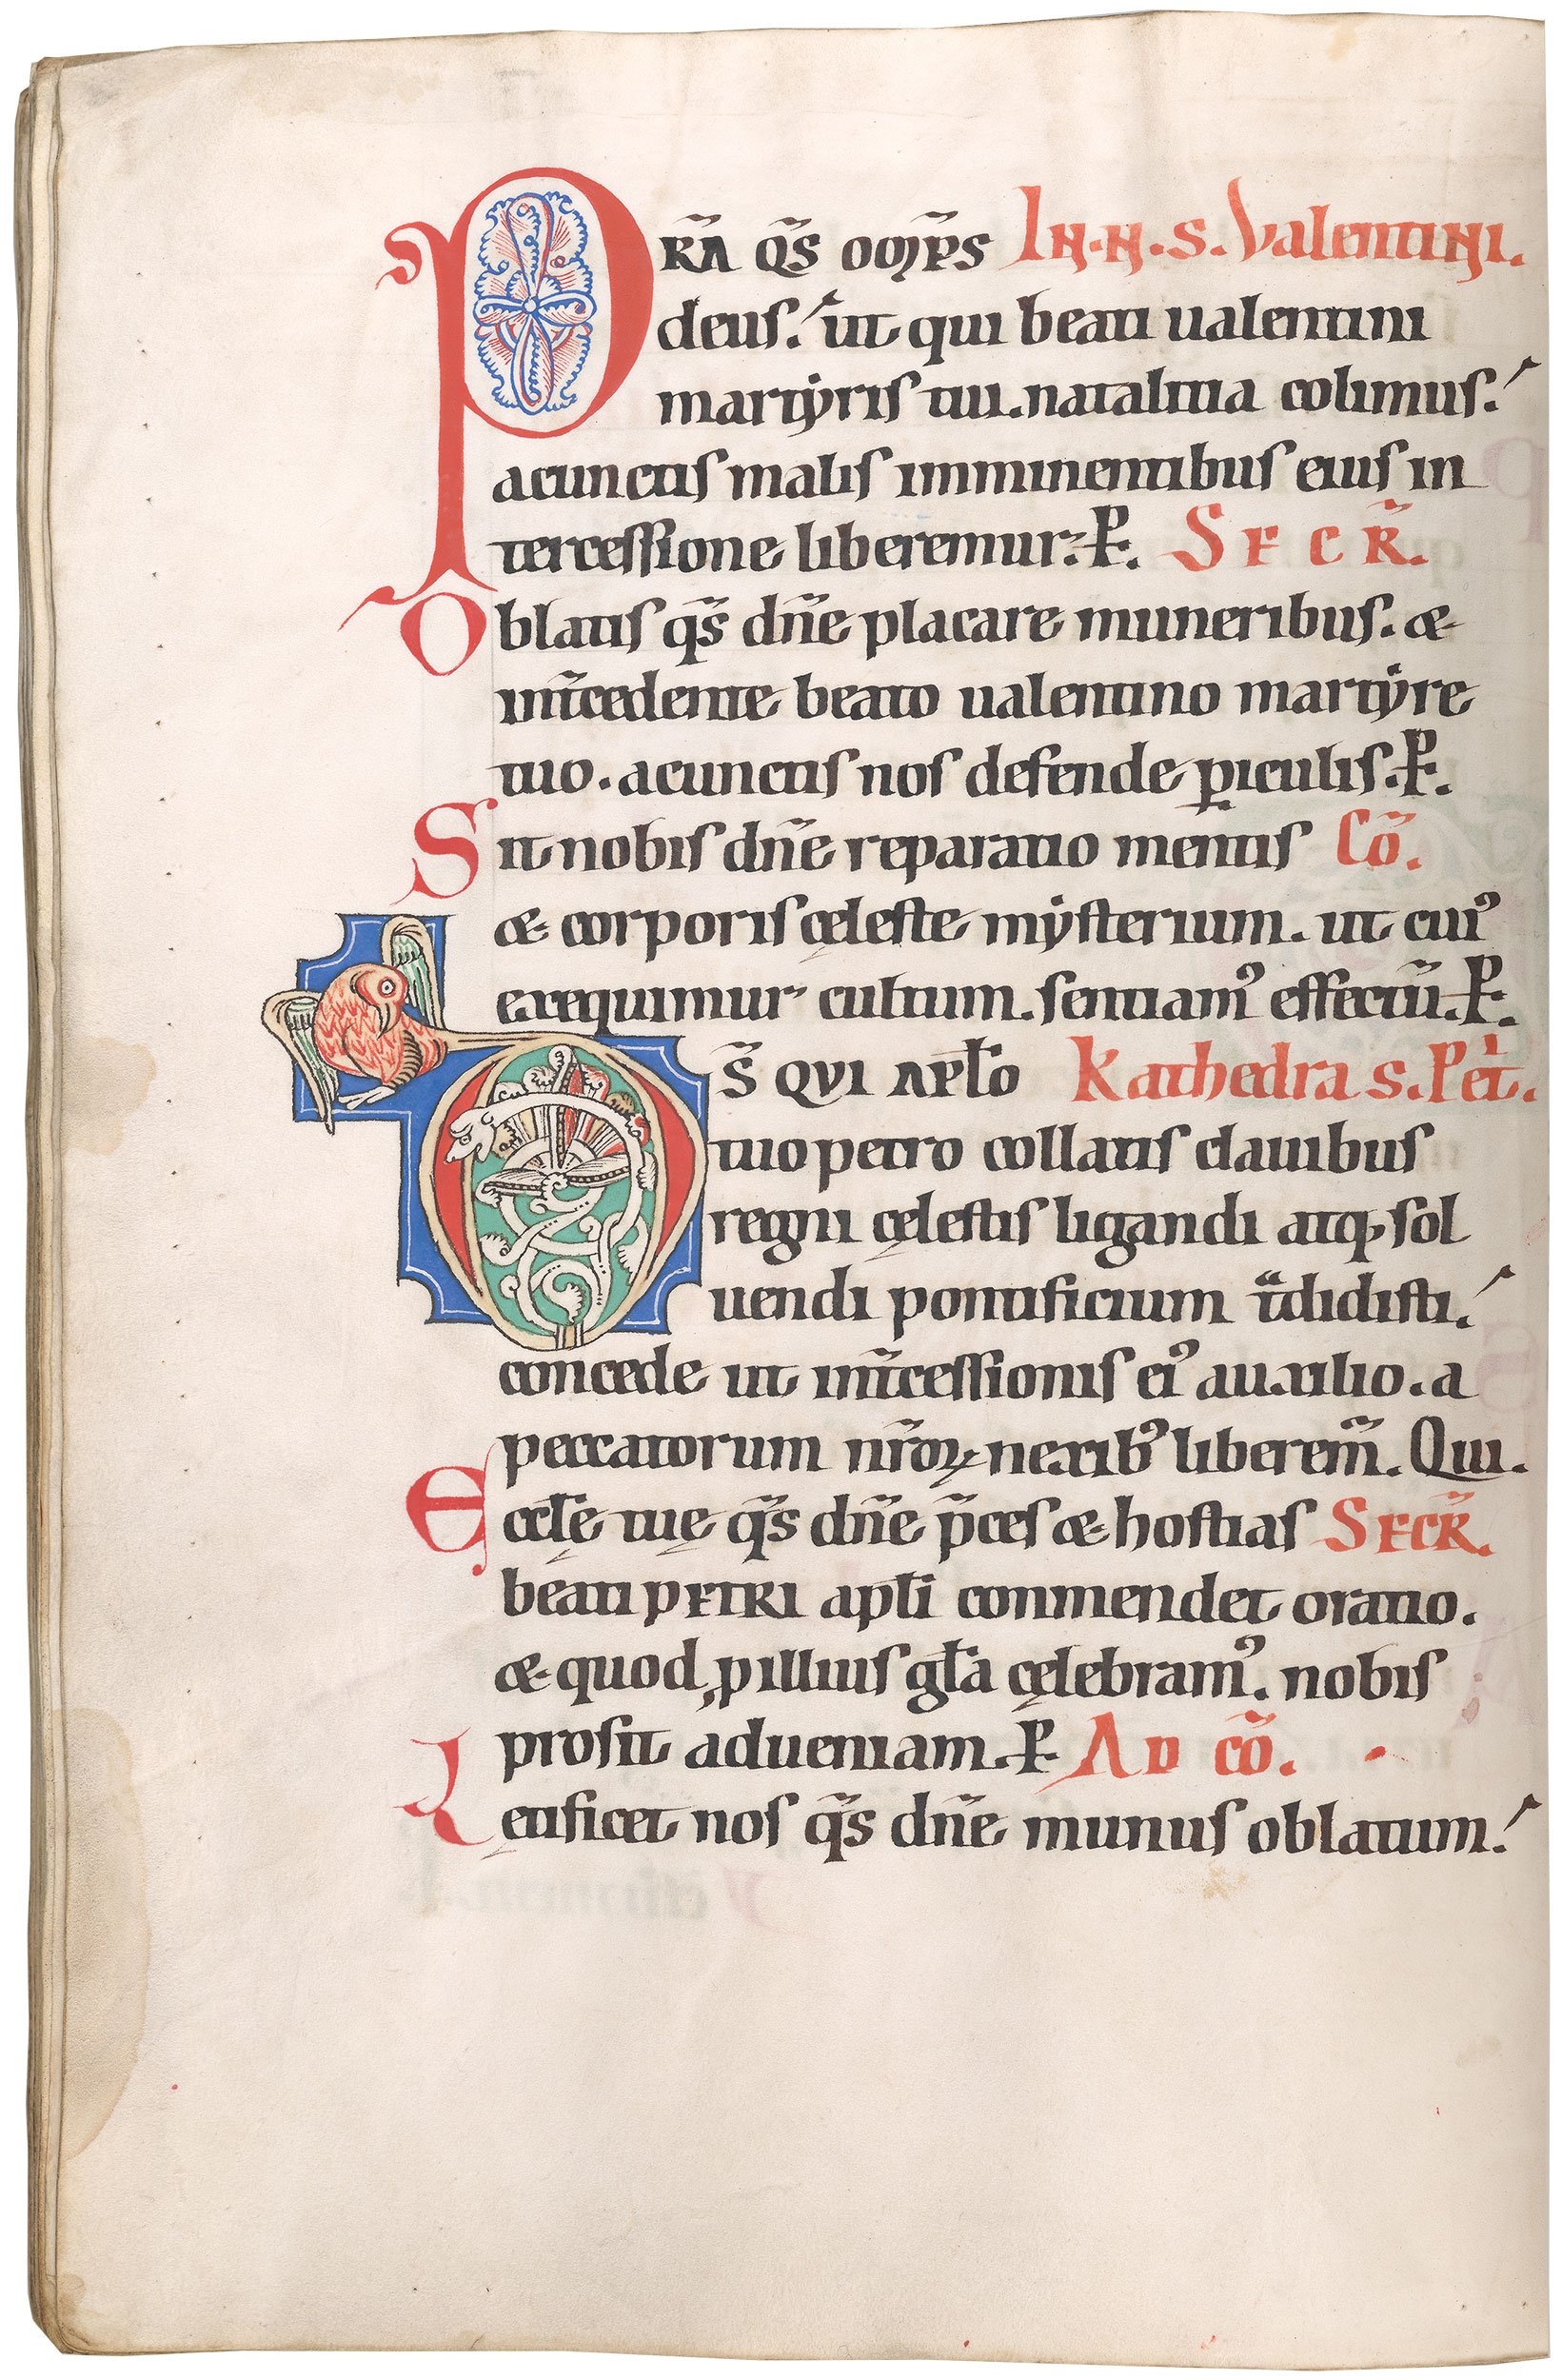 PRA q̃s om̅ps In·N·S·Valentini.
deus. ut qui beati ualentini
martẏris tui. natalitia colimus.
acunctis malis imminentibus eius in
tercessione liberemur. P. SECR̃.
Oblatis q̃s dñe placare muneribus. &
int̃cedente beato ualentino martẏre
tuo. acunctis nos defende ꝑiculis. P.
Sit nobis dñe reparatio mentis Cõ.
& corporis cęleste mẏsterium. ut cuiꝰ
exequimur cultum. sentiamꝰ effectũ. P.
DS̃ QVI APLO Kathedra S. Pet̃.
tuo petro collatis clauibus
regni cęlestis ligandi atq; sol
uendi pontificium tͣdidisti.
concede ut int̃cessionis eiꝰ auxilio. a
peccatorum nr̃oꝝ nexibꝰ liberem̃. Qui.
Eccłę tuę q̃s dñe p̃ces & hostias SECR̃.
beati PETRI apłi conmendet oratio.
& quod ꝓ illius głа cęlebramꝰ. nobis
prosit adueniam. P. AD cõ.
Lętificet nos q̃s dñe munus oblatum.